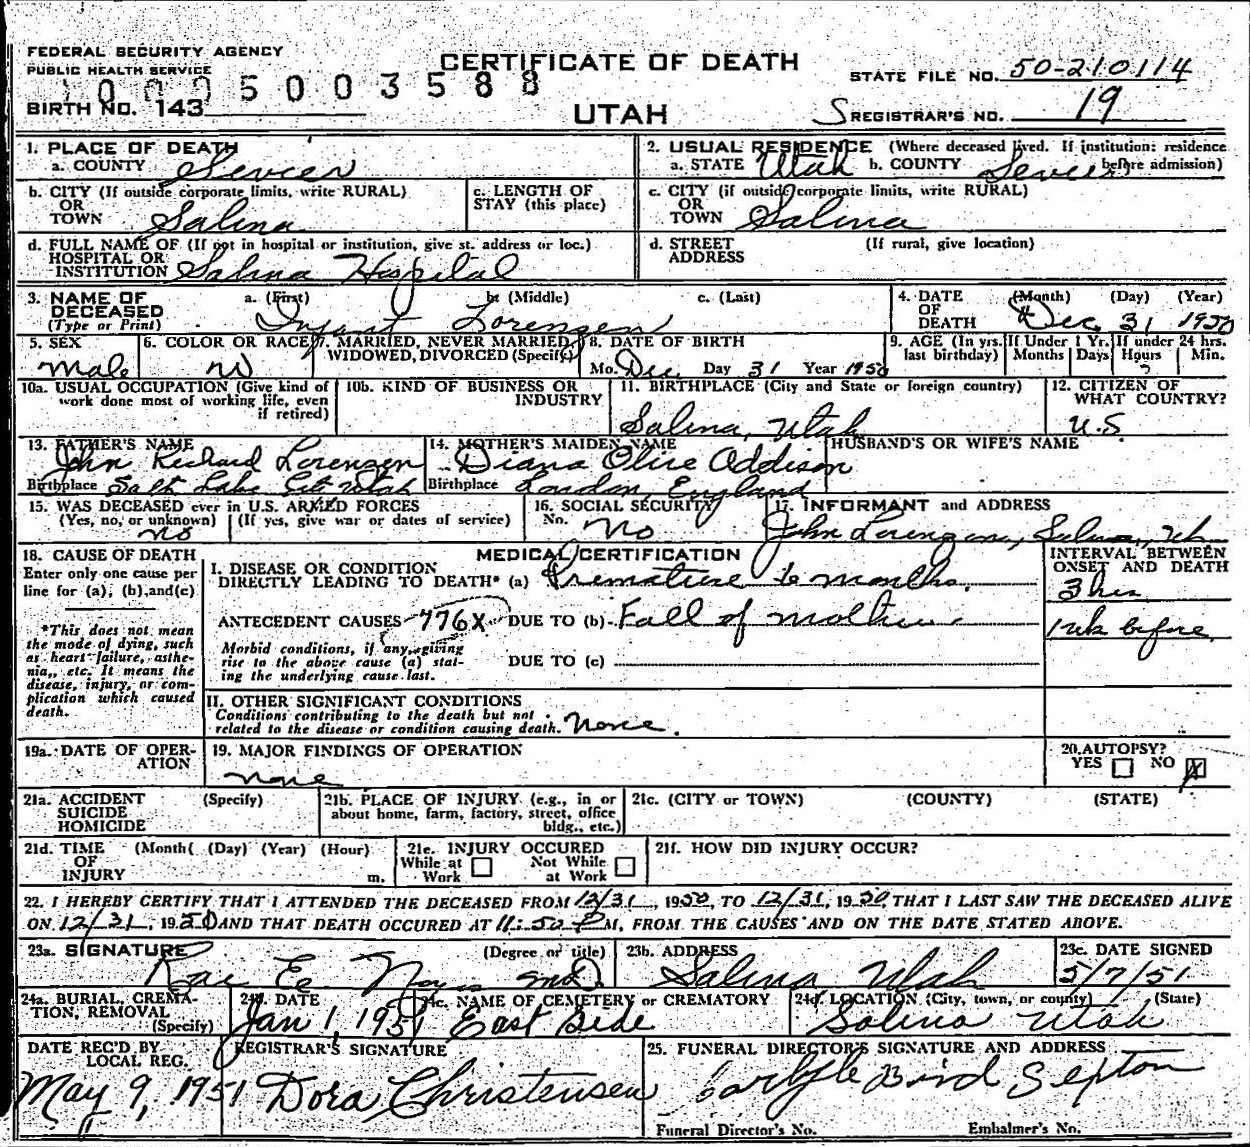 FEDERAL SECURITY AGENCY
PUBLIC HEALTH SERVICE
CERTIFICATE OF DEATH
STATE FILE NO. 50-210114
005003588
BIRTH NO. 143
UTAH
S REGISTRAR'S NO. 19
1. PLACE OF DEATH
a. COUNTY Sevier
2. USUAL RESIDENCE (Where deceased lived. If institution: residence before admission)
a. STATE Utah b. COUNTY Sevier
b. CITY (If outside corporate limits, write RURAL)
OR
TOWN Salina
c. LENGTH OF
STAY (this place)
c. CITY (if outside corporate limits, write RURAL)
OR
TOWN Salina
d. FULL NAME OF (If not in hospital or institution, give st. address or loc.)
HOSPITAL OR
INSTITUTION Salina Hospital
d. STREET (If rural, give location)
ADDRESS
3. NAME OF DECEASED (Type or Print)
a. (First) b. (Middle) c. (Last)
Infant Lorenzen
4. DATE OF DEATH (Month) (Day) (Year)
Dec. 31 1950
5. SEX
Male
6. COLOR OR RACE
W
7. MARRIED, NEVER MARRIED,
WIDOWED, DIVORCED (Specify)
8. DATE OF BIRTH
Mo. Dec. Day 31 Year 1950
9. AGE (In yrs. last birthday) If Under 1 Yr. Months Days If under 24 hrs. Hours Min.
10a. USUAL OCCUPATION (Give kind of
work done most of working life, even
if retired)
10b. KIND OF BUSINESS OR
INDUSTRY
11. BIRTHPLACE (City and State or foreign country)
Salina, Utah
12. CITIZEN OF
WHAT COUNTRY?
U.S
13. FATHER'S NAME
John Richard Lorenzen
Birthplace Salt Lake City Utah
14. MOTHER'S MAIDEN NAME
Diana Olive Addison
Birthplace London, England
HUSBAND'S OR WIFE'S NAME
15. WAS DECEASED ever in U.S. ARMED FORCES
(Yes, no, or unknown) (If yes, give war or dates of service)
no
16. SOCIAL SECURITY
No. No
17. INFORMANT and ADDRESS
John Lorenzen, Salina, Ut
18. CAUSE OF DEATH
Enter only one cause per
line for (a), (b), and (c)
*This does not mean
the mode of dying, such
as heart failure, asthe-
nia, etc. It means the
disease, injury, or com-
plication which caused
death.
MEDICAL CERTIFICATION
I. DISEASE OR CONDITION
DIRECTLY LEADING TO DEATH* (a) Premature 6 months.
ANTECEDENT CAUSES 776X DUE TO (b) Fall of mother
Morbid conditions, if any, giving
rise to the above cause (a) stat-
ing the underlying cause last.
DUE TO (c)
INTERVAL BETWEEN
ONSET AND DEATH
3 hrs
1 wk before
II. OTHER SIGNIFICANT CONDITIONS
Conditions contributing to the death but not
related to the disease or condition causing death. None.
19a. DATE OF OPER-
ATION
19. MAJOR FINDINGS OF OPERATION
none
20. AUTOPSY?
YES NO X
21a. ACCIDENT (Specify)
SUICIDE
HOMICIDE
21b. PLACE OF INJURY (e.g., in or
about home, farm, factory, street, office
bldg., etc.)
21c. (CITY or TOWN) (COUNTY) (STATE)
21d. TIME (Month( (Day) (Year) (Hour)
OF
INJURY m.
21e. INJURY OCCURED
While at Work Not While at Work
21f. HOW DID INJURY OCCUR?
22. I HEREBY CERTIFY THAT I ATTENDED THE DECEASED FROM 12/31, 1950, TO 12/31, 1950 THAT I LAST SAW THE DECEASED ALIVE
ON 12/31, 1950 AND THAT DEATH OCCURED AT 11:50 P M, FROM THE CAUSES AND ON THE DATE STATED ABOVE.
23a. SIGNATURE (Degree or title)
Rae E Noyes MD
23b. ADDRESS
Salina Utah
23c. DATE SIGNED
5/7/51
24a. BURIAL, CREMA-
TION, REMOVAL
(Specify)
24b. DATE
Jan 1, 1951
24c. NAME OF CEMETERY or CREMATORY
East Side
24d. LOCATION (City, town, or county) (State)
Salina Utah
DATE REC'D BY
LOCAL REG.
May 9, 1951
REGISTRAR'S SIGNATURE
Dora Christensen
25. FUNERAL DIRECTOR'S SIGNATURE AND ADDRESS
Carlyle Bird Septon
Funeral Director's No. Embalmer's No.